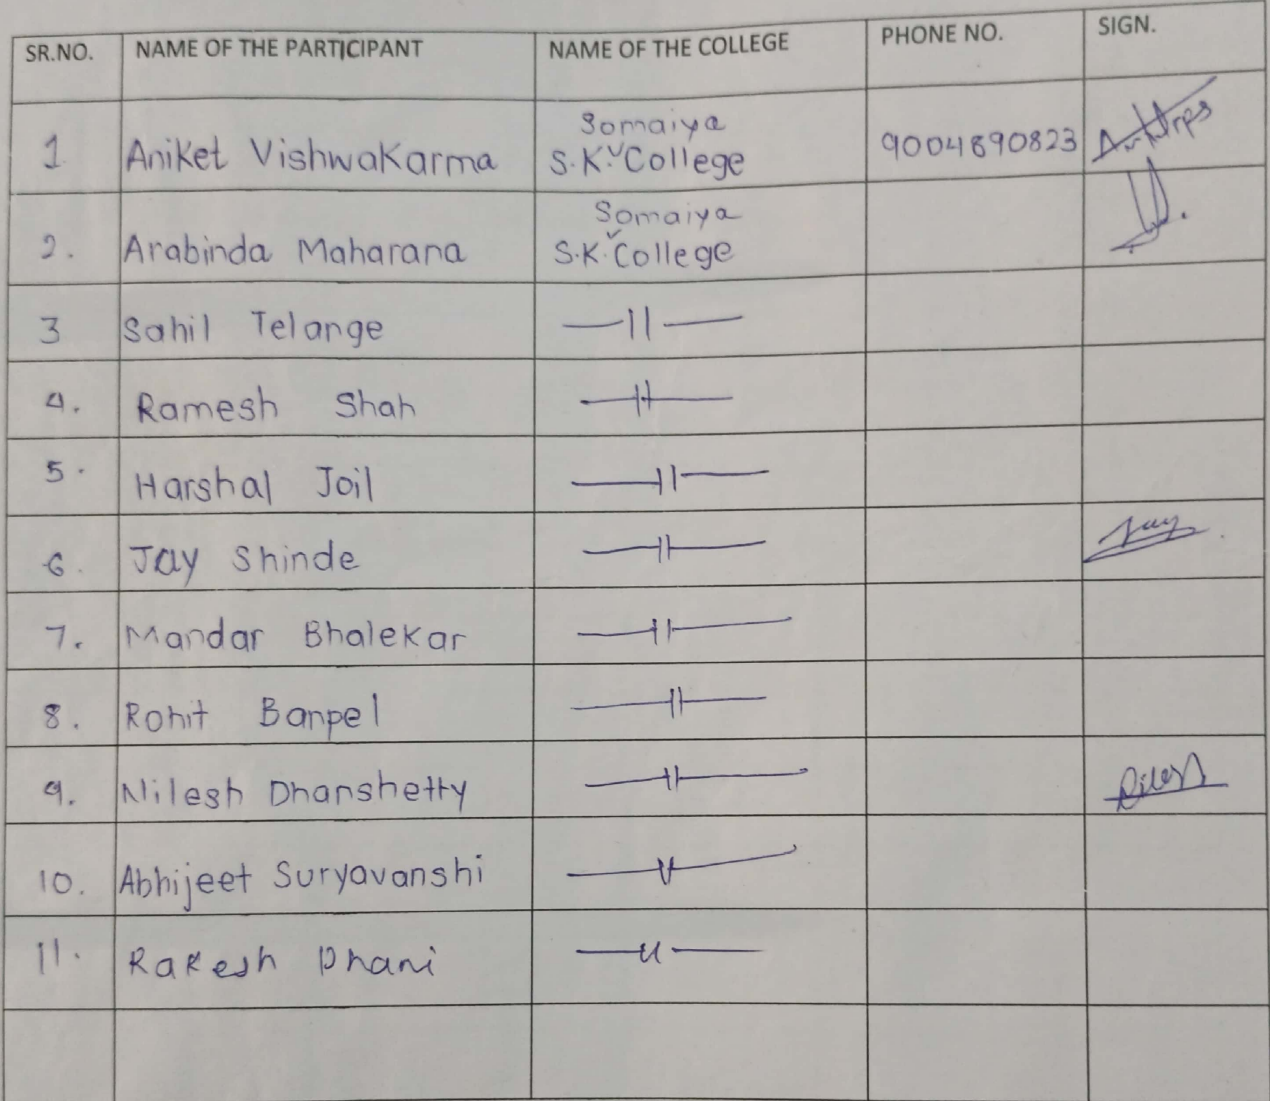 SR.NO. NAME OF THE PARTICIPANT NAME OF THE COLLEGE PHONE NO. SIGN.
1 Aniket Vishwakarma S.K. Somaiya College 9004890823
2. Arabinda Maharana S.K. Somaiya College
3 Sahil Telange —||—
4. Ramesh Shah —||—
5. Harshal Joil —||—
6. Jay Shinde —||— Jay
7. Mandar Bhalekar —||—
8. Rohit Banpel —||—
9. Nilesh Dhanshetty —||—
10. Abhijeet Suryavanshi —||—
11. Rakesh Dhani —||—